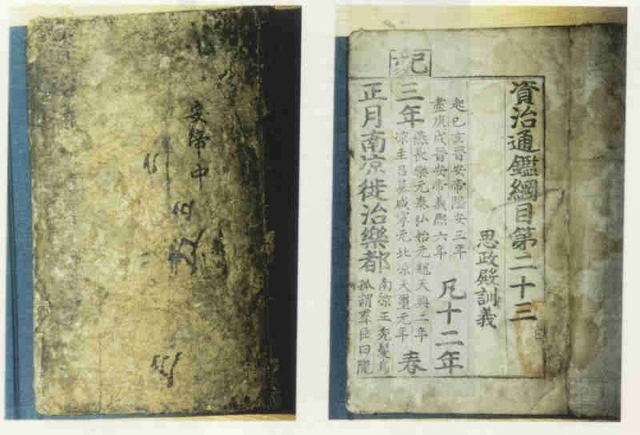 安帝中
資治通鑑綱目第二十三
思政殿訓義
起己亥晉安帝隆安三年
盡庚戌晉安帝義熙六年
凡十二年
己
三年
燕長樂元秦弘始元魏天興二年
涼主呂纂咸寧元北涼天璽元年
春
正月南涼徙治樂都
南涼王禿髮烏
孤謂羣臣曰隴